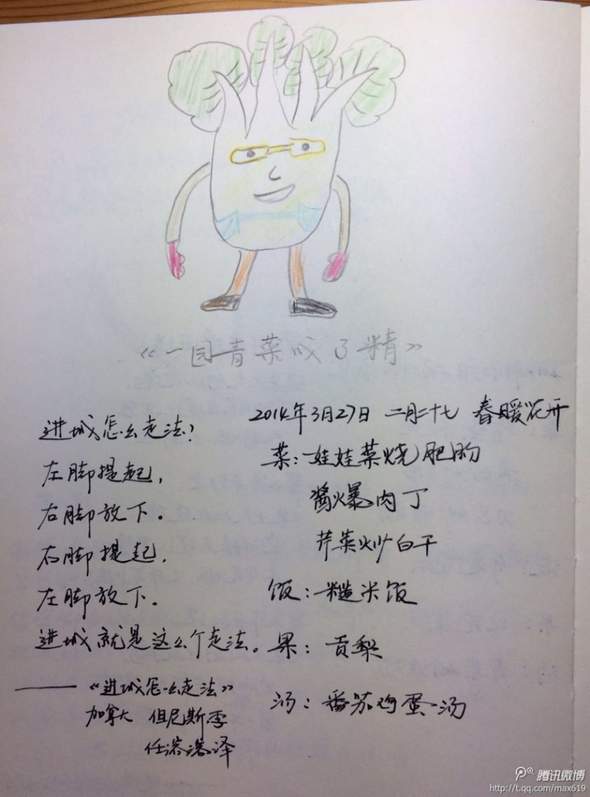 《一园青菜成了精》
进城怎么走法?
左脚提起,
右脚放下。
右脚提起,
左脚放下。
进城就是这么个走法。
——《进城怎么走法》
加拿大 但尼斯李
任溶溶译
2014年3月27日 二月二十七 春暖花开
菜:娃娃菜烧肥肠
酱爆肉丁
芹菜炒白干
饭:糙米饭
果:贡梨
汤:番茄鸡蛋汤
腾讯微博
http://t.qq.com/max619